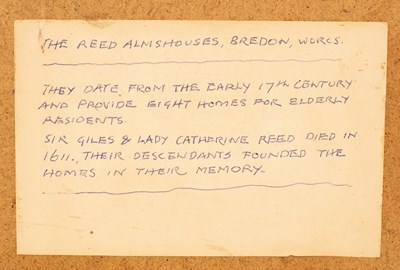 THE REED ALMSHOUSES, BREDON, WORCS.
THEY DATE FROM THE EARLY 17TH CENTURY
AND PROVIDE EIGHT HOMES FOR ELDERLY
RESIDENTS.
SIR GILES & LADY CATHERINE REED DIED IN
1611. THEIR DESCENDANTS FOUNDED THE
HOMES IN THEIR MEMORY.